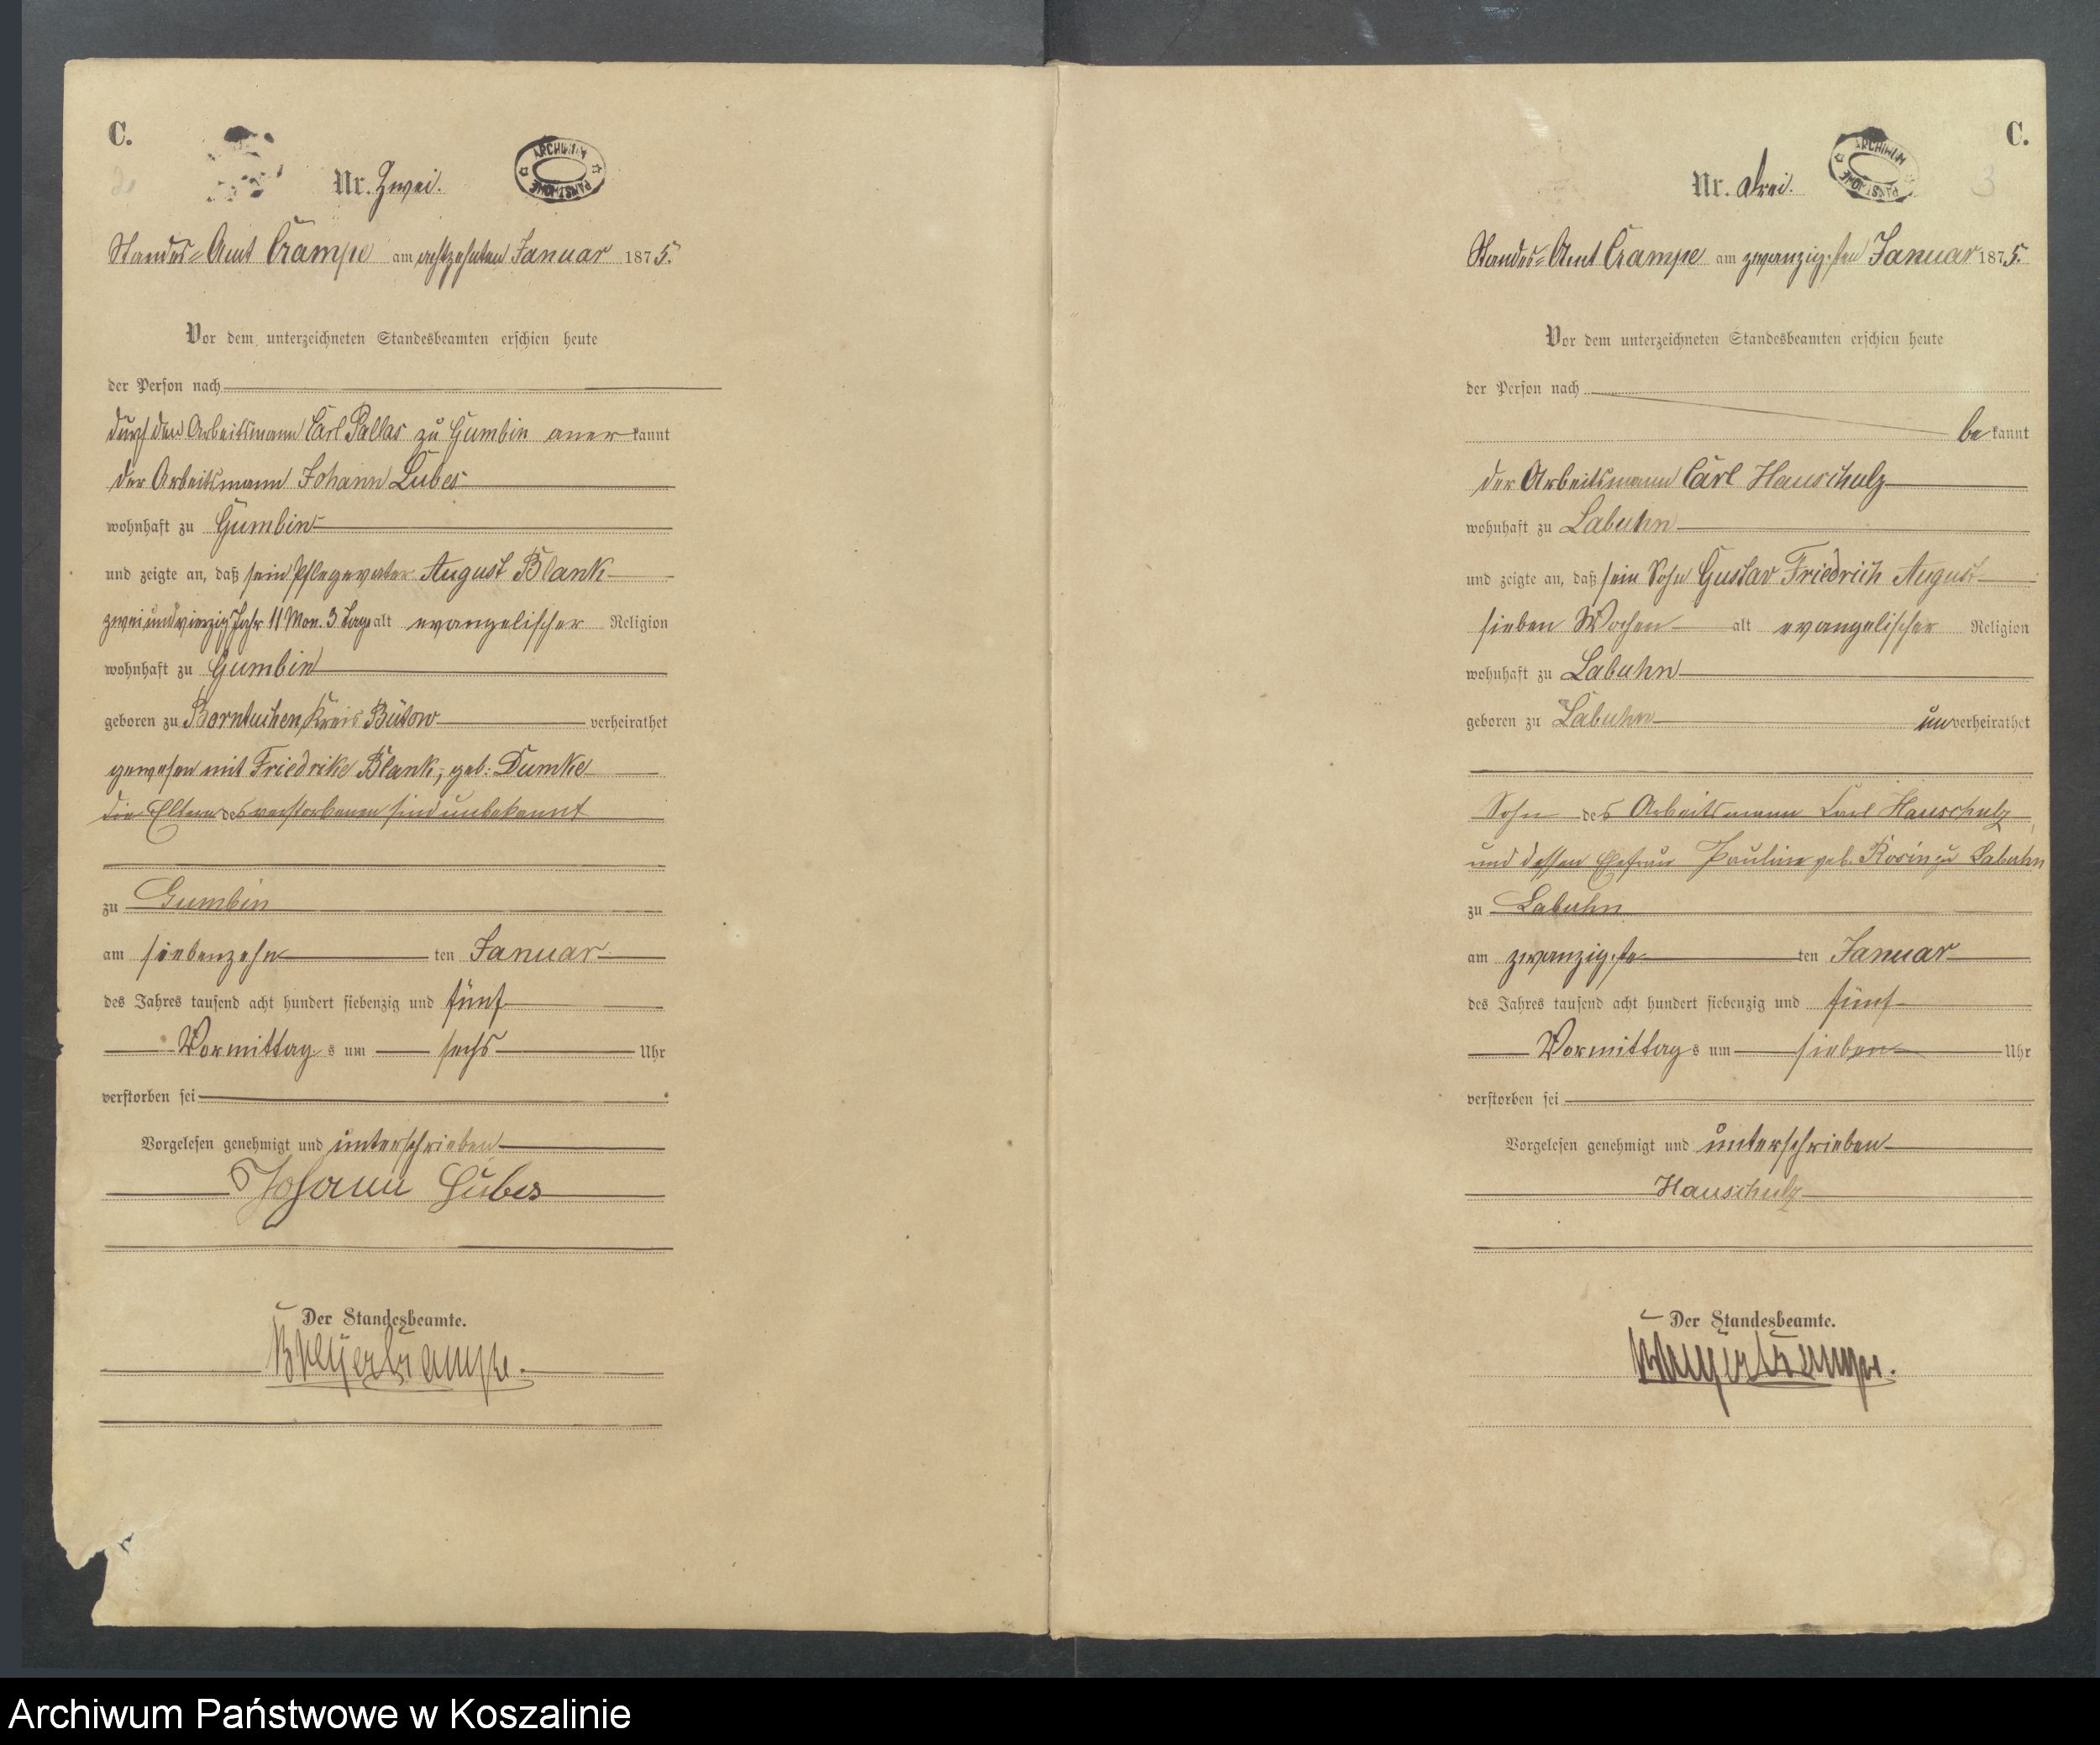 C.
2.
Nr. Zwei.
ARCHIWUM PAŃSTWOWE
Standes-Amt Crampe am achtzehnten Januar 1875.
Vor dem unterzeichneten Standesbeamten erschien heute
der Person nach
durch den Arbeitsmann Carl Pallas zu Gumbin anerkannt
der Arbeitsmann Johann Lübes
wohnhaft zu Gumbin
und zeigte an, daß sein Pflegevater August Blank
zweiundvierzig Jahr 11 Mon. 3 Tage alt evangelischer Religion
wohnhaft zu Gumbin
geboren zu Borntuchen, Kreis Bütow verheirathet
gewesen mit Friedrike Blank, geb: Dumke
die Eltern des verstorbenen sind unbekannt
zu Gumbin
am siebenzehn ten Januar
des Jahres tausend acht hundert siebenzig und fünf
Vormittags um sechs Uhr
verstorben sei
Vorgelesen genehmigt und unterschrieben
Johann Lübes
Der Standesbeamte.
C.
Nr. drei.
ARCHIWUM PAŃSTWOWE
3
Standes-Amt Crampe am zwanzigsten Januar 1875.
Vor dem unterzeichneten Standesbeamten erschien heute
der Person nach
bekannt
der Arbeitsmann Carl Hauschulz
wohnhaft zu Labuhn
und zeigte an, daß sein Sohn Gustav Friedrich August
sieben Wochen alt evangelischer Religion
wohnhaft zu Labuhn
geboren zu Labuhn unverheirathet
Sohn des Arbeitsmann Carl Hauschulz
und dessen Ehefrau Pauline geb. Rosin zu Labuhn
zu Labuhn
am zwanzigste ten Januar
des Jahres tausend acht hundert siebenzig und fünf
Vormittags um sieben Uhr
verstorben sei
Vorgelesen genehmigt und unterschrieben
Hauschulz
Der Standesbeamte.
Archiwum Państwowe w Koszalinie